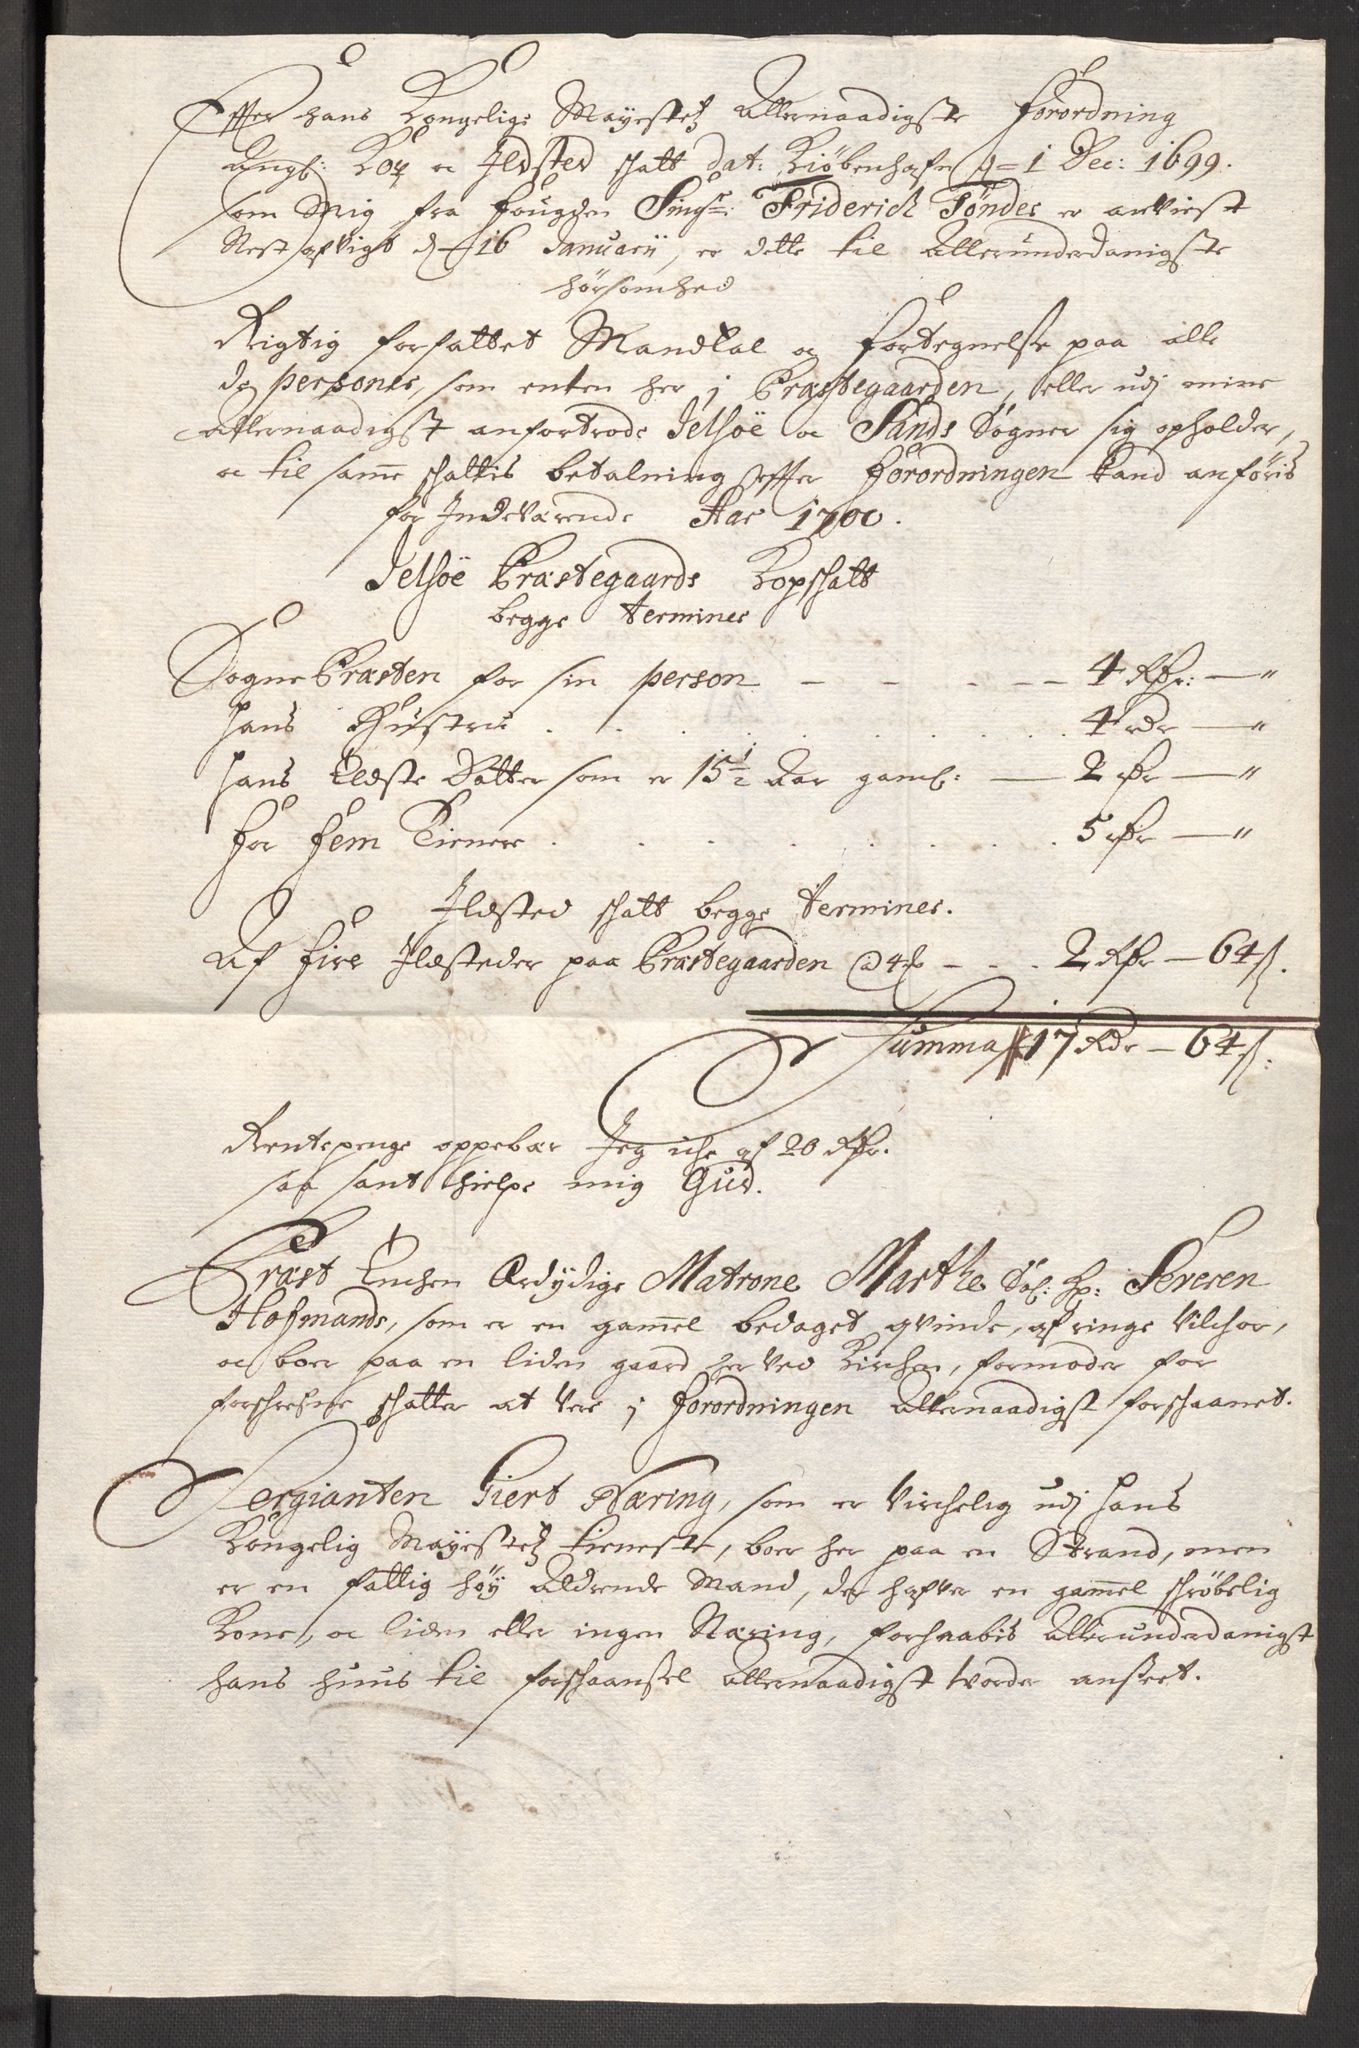 Effter hans Kongelige Mayestetz Allernaadigste Forordning
Angl: Kop oc Ildsted skatt dat: Kiøbenhafn d= 1 Dec: 1699.
som Mig fra Fougden Sing.r: Friderich Tøndes er anviist
Nest afvigt d= 16 Januarij, er dette til Allerunderdanigste
hørsomhed
Rigtig forfattet Mandtal oc Fortegnelse paa alle
de persones, som enten her j Præstegaarden, eller udj mine
allernaadigst anfortrode Jelsöe oc Sands Sogner sig opholder,
oc til samme skattis betalning effter Forordningen kand anføris
for Indeværende Aar 1700.
Jelsöe Præstegaards Kopskatt
begge Termines
Sogne Præsten for sin person - - - - - - 4 Rdr: — "
hans Hustru . . . . . . . 4 rdr — "
hans Eldste Datter som er 15 1/2 Aar gaml: — 2 rdr — "
for fem Tienere . . . . . . . 5 rdr — "
Ildsted skatt begge Termines.
Af Fire Ildsteder paa Præstegaarden @ 4 - - . 2 Rdr — 64 s.
Summa 17 Rdr — 64 s:
Rentepenge oppebær Jeg iche af 20 Rdr.
saa sant hielpe mig Gud.
Præst Enchen Erdydige Matrone Marthe Sal: Hr: Sereren
Hofmands, som er en gammel bedaget qvinde, af ringe Vilchor,
oc boer paa en liden gaard her ved Kirchen, formoder for
forschrefne skatter at Vere j Forordningen Allernaadigst forschaanet.
Sergianten Giert Næring, som er Virchelig udj hans
Kongelig Mayestetz tieneste, boer her paa en Strand, men
er en fattig høy Aldrende Mand, der hafver en gammel schrøbelig
Kone, oc liden eller ingen Næring, forhaabis Allerunderdanigst
hans huus til forschaansel Allernaadigst vorder anseet.